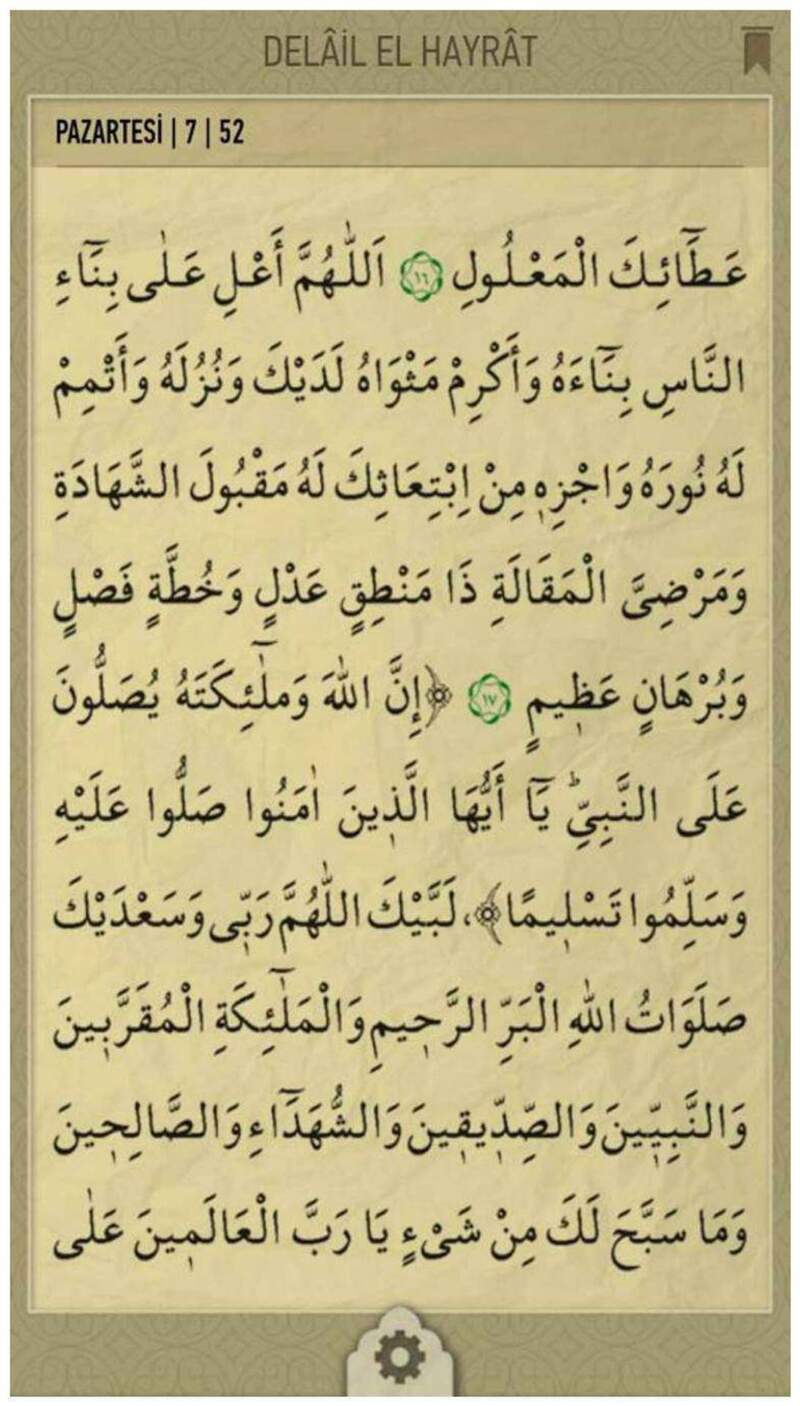 DELÂİL EL HAYRÂT
PAZARTESİ | 7 | 52
عَطَٓائِكَ الْمَعْلُولِ ١٦ اَللّٰهُمَّ أَعْلِ عَلٰى بِنَٓاءِ
النَّاسِ بِنَٓاءَهُ وَأَكْرِمْ مَثْوَاهُ لَدَيْكَ وَنُزُلَهُ وَأَتْمِمْ
لَهُ نُورَهُ وَاجْزِهٖ مِنْ اِبْتِعَاثِكَ لَهُ مَقْبُولَ الشَّهَادَةِ
وَمَرْضِىَّ الْمَقَالَةِ ذَا مَنْطِقٍ عَدْلٍ وَخُطَّةٍ فَصْلٍ
وَبُرْهَانٍ عَظٖيمٍ ١٧ ﴿إِنَّ اللّٰهَ وَمَلٰٓئِكَتَهُ يُصَلُّونَ
عَلَى النَّبِيِّؕ يَٓا أَيُّهَا الَّذٖينَ اٰمَنُوا صَلُّوا عَلَيْهِ
وَسَلِّمُوا تَسْلٖيمًا﴾، لَبَّيْكَ اللّٰهُمَّ رَبّٖى وَسَعْدَيْكَ
صَلَوَاتُ اللّٰهِ الْبَرِّ الرَّحٖيمِ وَالْمَلٰٓئِكَةِ الْمُقَرَّبٖينَ
وَالنَّبِيّٖينَ وَالصِّدّٖيقٖينَ وَالشُّهَدَٓاءِ وَالصَّالِحٖينَ
وَمَا سَبَّحَ لَكَ مِنْ شَىْءٍ يَا رَبَّ الْعَالَمٖينَ عَلٰى